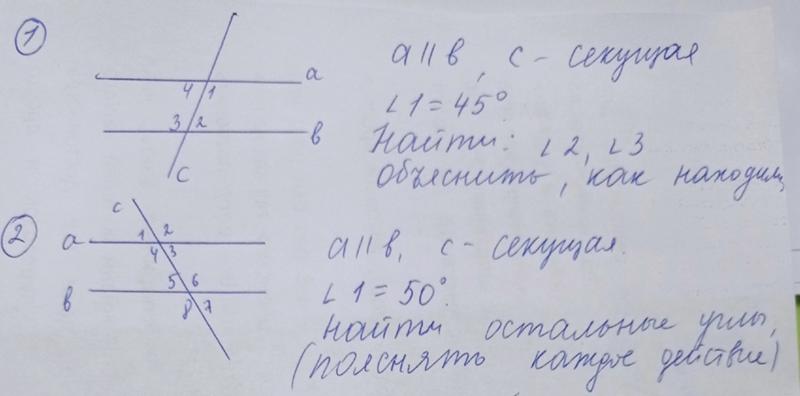 1
a || b, c - секущая
∠1 = 45°
Найти: ∠2, ∠3
Объяснить, как находим
4 1 a
3 2 b
c
2
a || b, c - секущая.
∠1 = 50°.
Найти остальные углы,
(пояснять каждое действие)
c
a 1 2
4 3
5 6
b 8 7